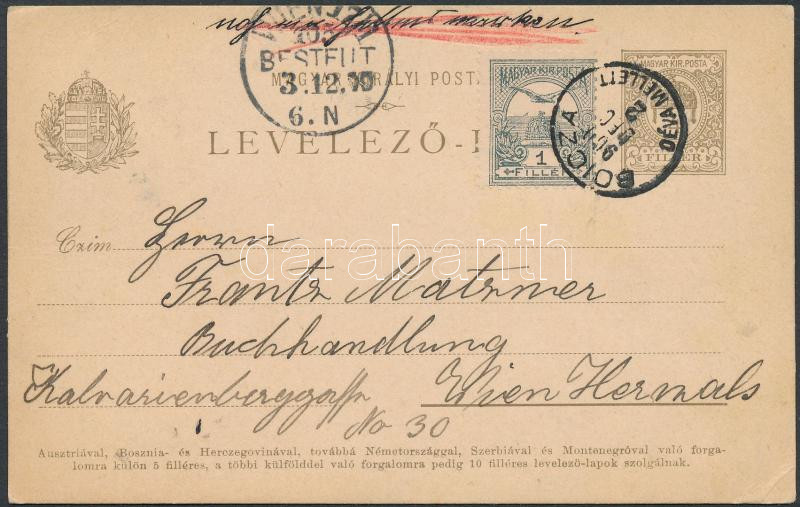 noch ein marken.
BESTELLT
3.12.
6.N
MAGYAR KIRÁLYI POST
LEVELEZŐ-L
MAGYAR KIR. POSTA
1
FILLÉR
MAGYAR KIR. POSTA
FILLÉR
BOICZA
DÉVA MELLETT
DEC
2
Czim Herrn
Frantz Matzner
Buchhandlung
Kalvarienberggasse Wien Hernals
No 30
darabanth
Ausztriával, Bosznia- és Herczegovinával, továbbá Németországgal, Szerbiával és Montenegróval való forga-
lomra külön 5 filléres, a többi külfölddel való forgalomra pedig 10 filléres levelező-lapok szolgálnak.